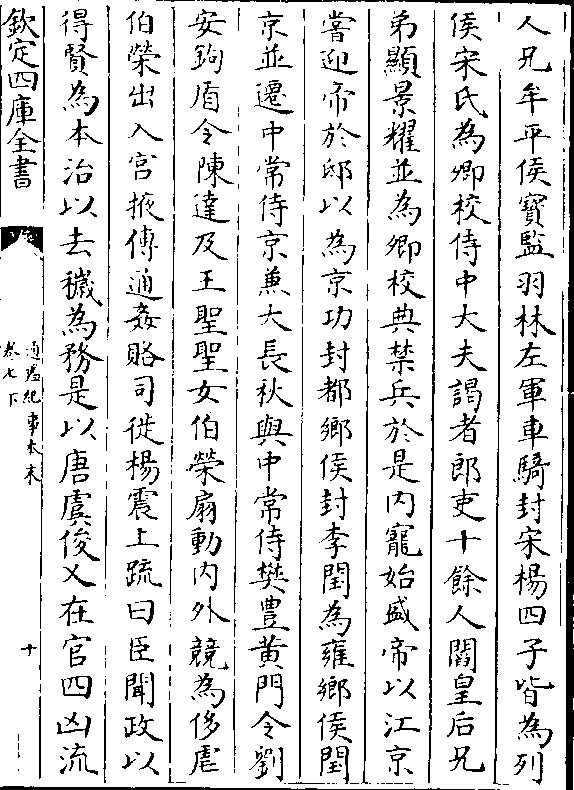 人兄牟平侯寶監羽林左軍車騎封宋楊四子皆為列
侯宋氏為卿校侍中大夫謁者郎吏十餘人閻皇后兄
弟顯景耀並為卿校典禁兵於是内寵始盛帝以江京
嘗迎帝於邸以為京功封都鄉侯封李閏為雍鄉侯閏
京並遷中常侍京兼大長秋與中常侍樊豊黄門令劉
安鉤盾令陳達及王聖聖女伯榮扇動内外競為侈虐
伯榮出入宫掖傳通姦賂司徒楊震上疏曰臣聞政以
得賢為本治以去穢為務是以唐虞俊乂在官四凶流
欽定四庫全書
通鑑紀事本末
卷七下
十